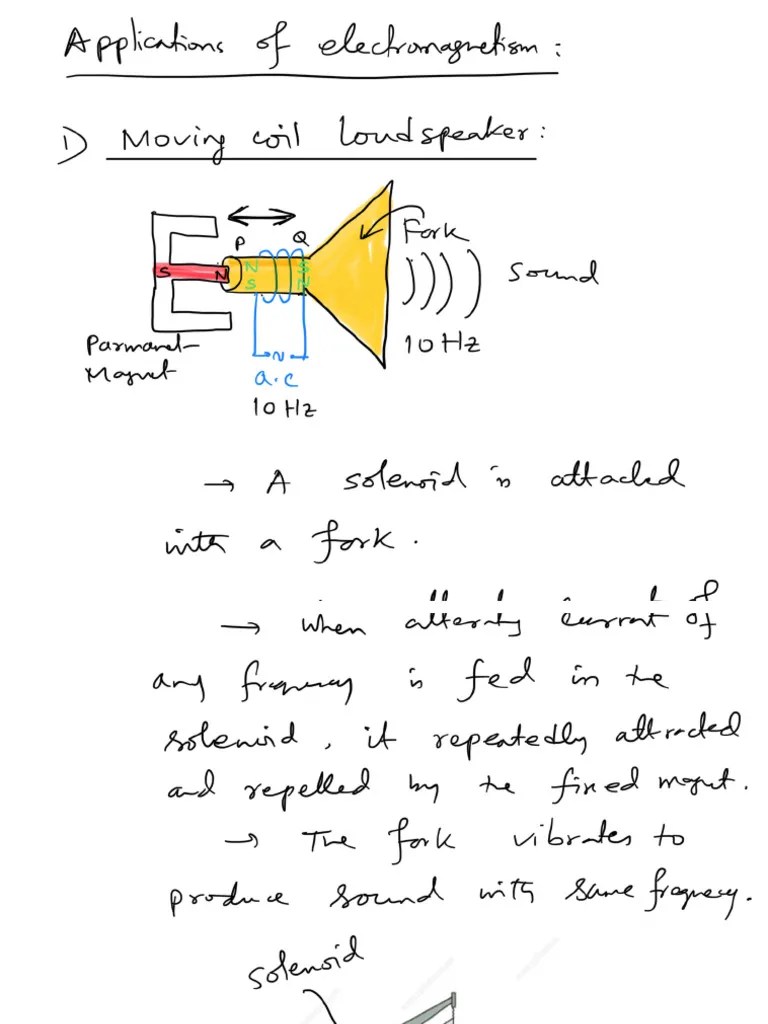 Applications of electromagnetism:
1) Moving coil loudspeaker:
P Q
Fork
S N N S
S N
Sound
Parmanet
Magnet
10 Hz
~
a.c
10 Hz
→ A solenoid is attached
with a fork.
→ When alternaty current of
any frequency is fed in the
solenoid, it repeatedly attracted
and repelled by the fixed magnet.
→ The fork vibrates to
produce sound with same frequency.
solenoid